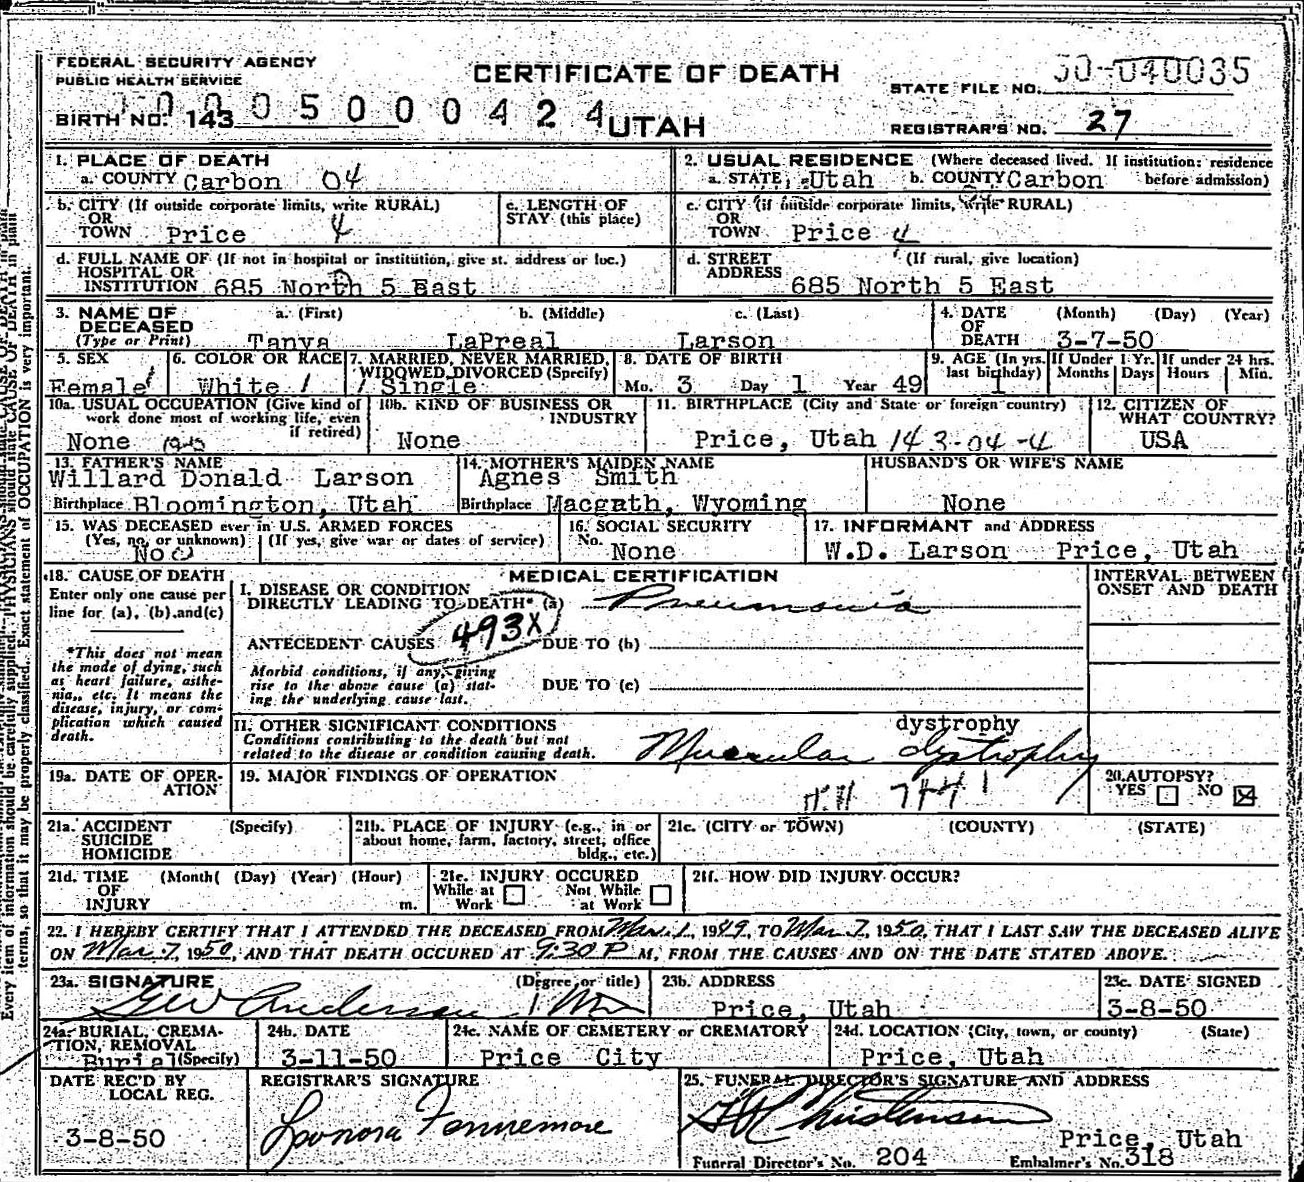 FEDERAL SECURITY AGENCY
PUBLIC HEALTH SERVICE
CERTIFICATE OF DEATH
STATE FILE NO. 50-040035
BIRTH NO. 143 05000424
UTAH
REGISTRAR'S NO. 27
1. PLACE OF DEATH
a. COUNTY Carbon 04
2. USUAL RESIDENCE (Where deceased lived. If institution: residence before admission)
a. STATE Utah b. COUNTY Carbon
b. CITY (If outside corporate limits, write RURAL) OR TOWN Price 4
c. LENGTH OF STAY (this place)
c. CITY (if outside corporate limits, write RURAL) OR TOWN Price 4
d. FULL NAME OF (If not in hospital or institution, give st. address or loc.) HOSPITAL OR INSTITUTION 685 North 5 East
d. STREET ADDRESS (If rural, give location) 685 North 5 East
3. NAME OF DECEASED (Type or Print)
a. (First) Tanya
b. (Middle) LaPreal
c. (Last) Larson
4. DATE OF DEATH (Month) (Day) (Year) 3-7-50
5. SEX Female 1
6. COLOR OR RACE White 1
7. MARRIED, NEVER MARRIED, WIDOWED, DIVORCED (Specify) 1 Single
8. DATE OF BIRTH Mo. 3 Day 1 Year 49
9. AGE (In yrs. last birthday) 1
If Under 1 Yr. Months Days
If under 24 hrs. Hours Min.
10a. USUAL OCCUPATION (Give kind of work done most of working life, even if retired) None
10b. KIND OF BUSINESS OR INDUSTRY None
11. BIRTHPLACE (City and State or foreign country) Price, Utah 143-04-4
12. CITIZEN OF WHAT COUNTRY? USA
13. FATHER'S NAME Willard Donald Larson
Birthplace Bloomington, Utah
14. MOTHER'S MAIDEN NAME Agnes Smith
Birthplace Macgath, Wyoming
HUSBAND'S OR WIFE'S NAME None
15. WAS DECEASED ever in U.S. ARMED FORCES
(Yes, no, or unknown) (If yes, give war or dates of service)
No 0
16. SOCIAL SECURITY No. None
17. INFORMANT and ADDRESS
W.D. Larson Price, Utah
18. CAUSE OF DEATH
Enter only one cause per line for (a), (b), and (c)
*This does not mean the mode of dying, such as heart failure, asthenia, etc. It means the disease, injury, or complication which caused death.
MEDICAL CERTIFICATION
INTERVAL BETWEEN ONSET AND DEATH
I. DISEASE OR CONDITION DIRECTLY LEADING TO DEATH* (a) Pneumonia
ANTECEDENT CAUSES 493X DUE TO (b)
Morbid conditions, if any, giving rise to the above cause (a) stating the underlying cause last.
DUE TO (c)
II. OTHER SIGNIFICANT CONDITIONS
Conditions contributing to the death but not related to the disease or condition causing death.
dystrophy
Muscular dystrophy
19a. DATE OF OPERATION
19. MAJOR FINDINGS OF OPERATION
7441
20. AUTOPSY? YES NO
21a. ACCIDENT SUICIDE HOMICIDE (Specify)
21b. PLACE OF INJURY (e.g., in or about home, farm, factory, street, office bldg., etc.)
21c. (CITY or TOWN) (COUNTY) (STATE)
21d. TIME OF INJURY (Month( (Day) (Year) (Hour) m.
21e. INJURY OCCURED While at Work Not While at Work
21f. HOW DID INJURY OCCUR?
22. I HEREBY CERTIFY THAT I ATTENDED THE DECEASED FROM Mar. 1, 1949, TO Mar. 7, 1950, THAT I LAST SAW THE DECEASED ALIVE
ON Mar. 7, 1950, AND THAT DEATH OCCURED AT 9:30 P M, FROM THE CAUSES AND ON THE DATE STATED ABOVE.
23a. SIGNATURE (Degree or title)
GW Anderson MD
23b. ADDRESS Price, Utah
23c. DATE SIGNED 3-8-50
24a. BURIAL, CREMATION, REMOVAL (Specify) Burial
24b. DATE 3-11-50
24c. NAME OF CEMETERY or CREMATORY Price City
24d. LOCATION (City, town, or county) (State) Price, Utah
DATE REC'D BY LOCAL REG. 3-8-50
REGISTRAR'S SIGNATURE
Leonora Fennemore
25. FUNERAL DIRECTOR'S SIGNATURE AND ADDRESS
Christensen
Price, Utah
Funeral Director's No. 204 Embalmer's No. 318